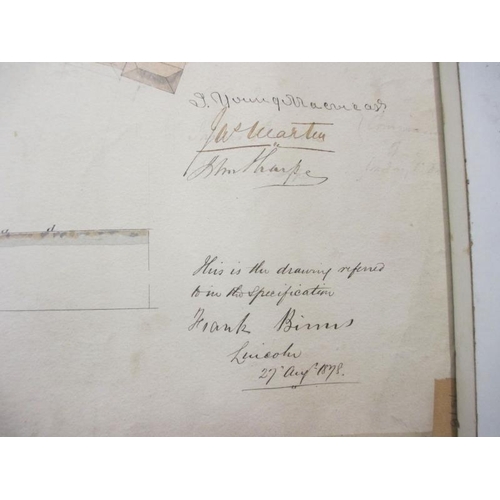 Jas Martin
John Sharpe
This is the drawing referred
to in the Specification
Frank Binns
Lincoln
27 Augt 1878.